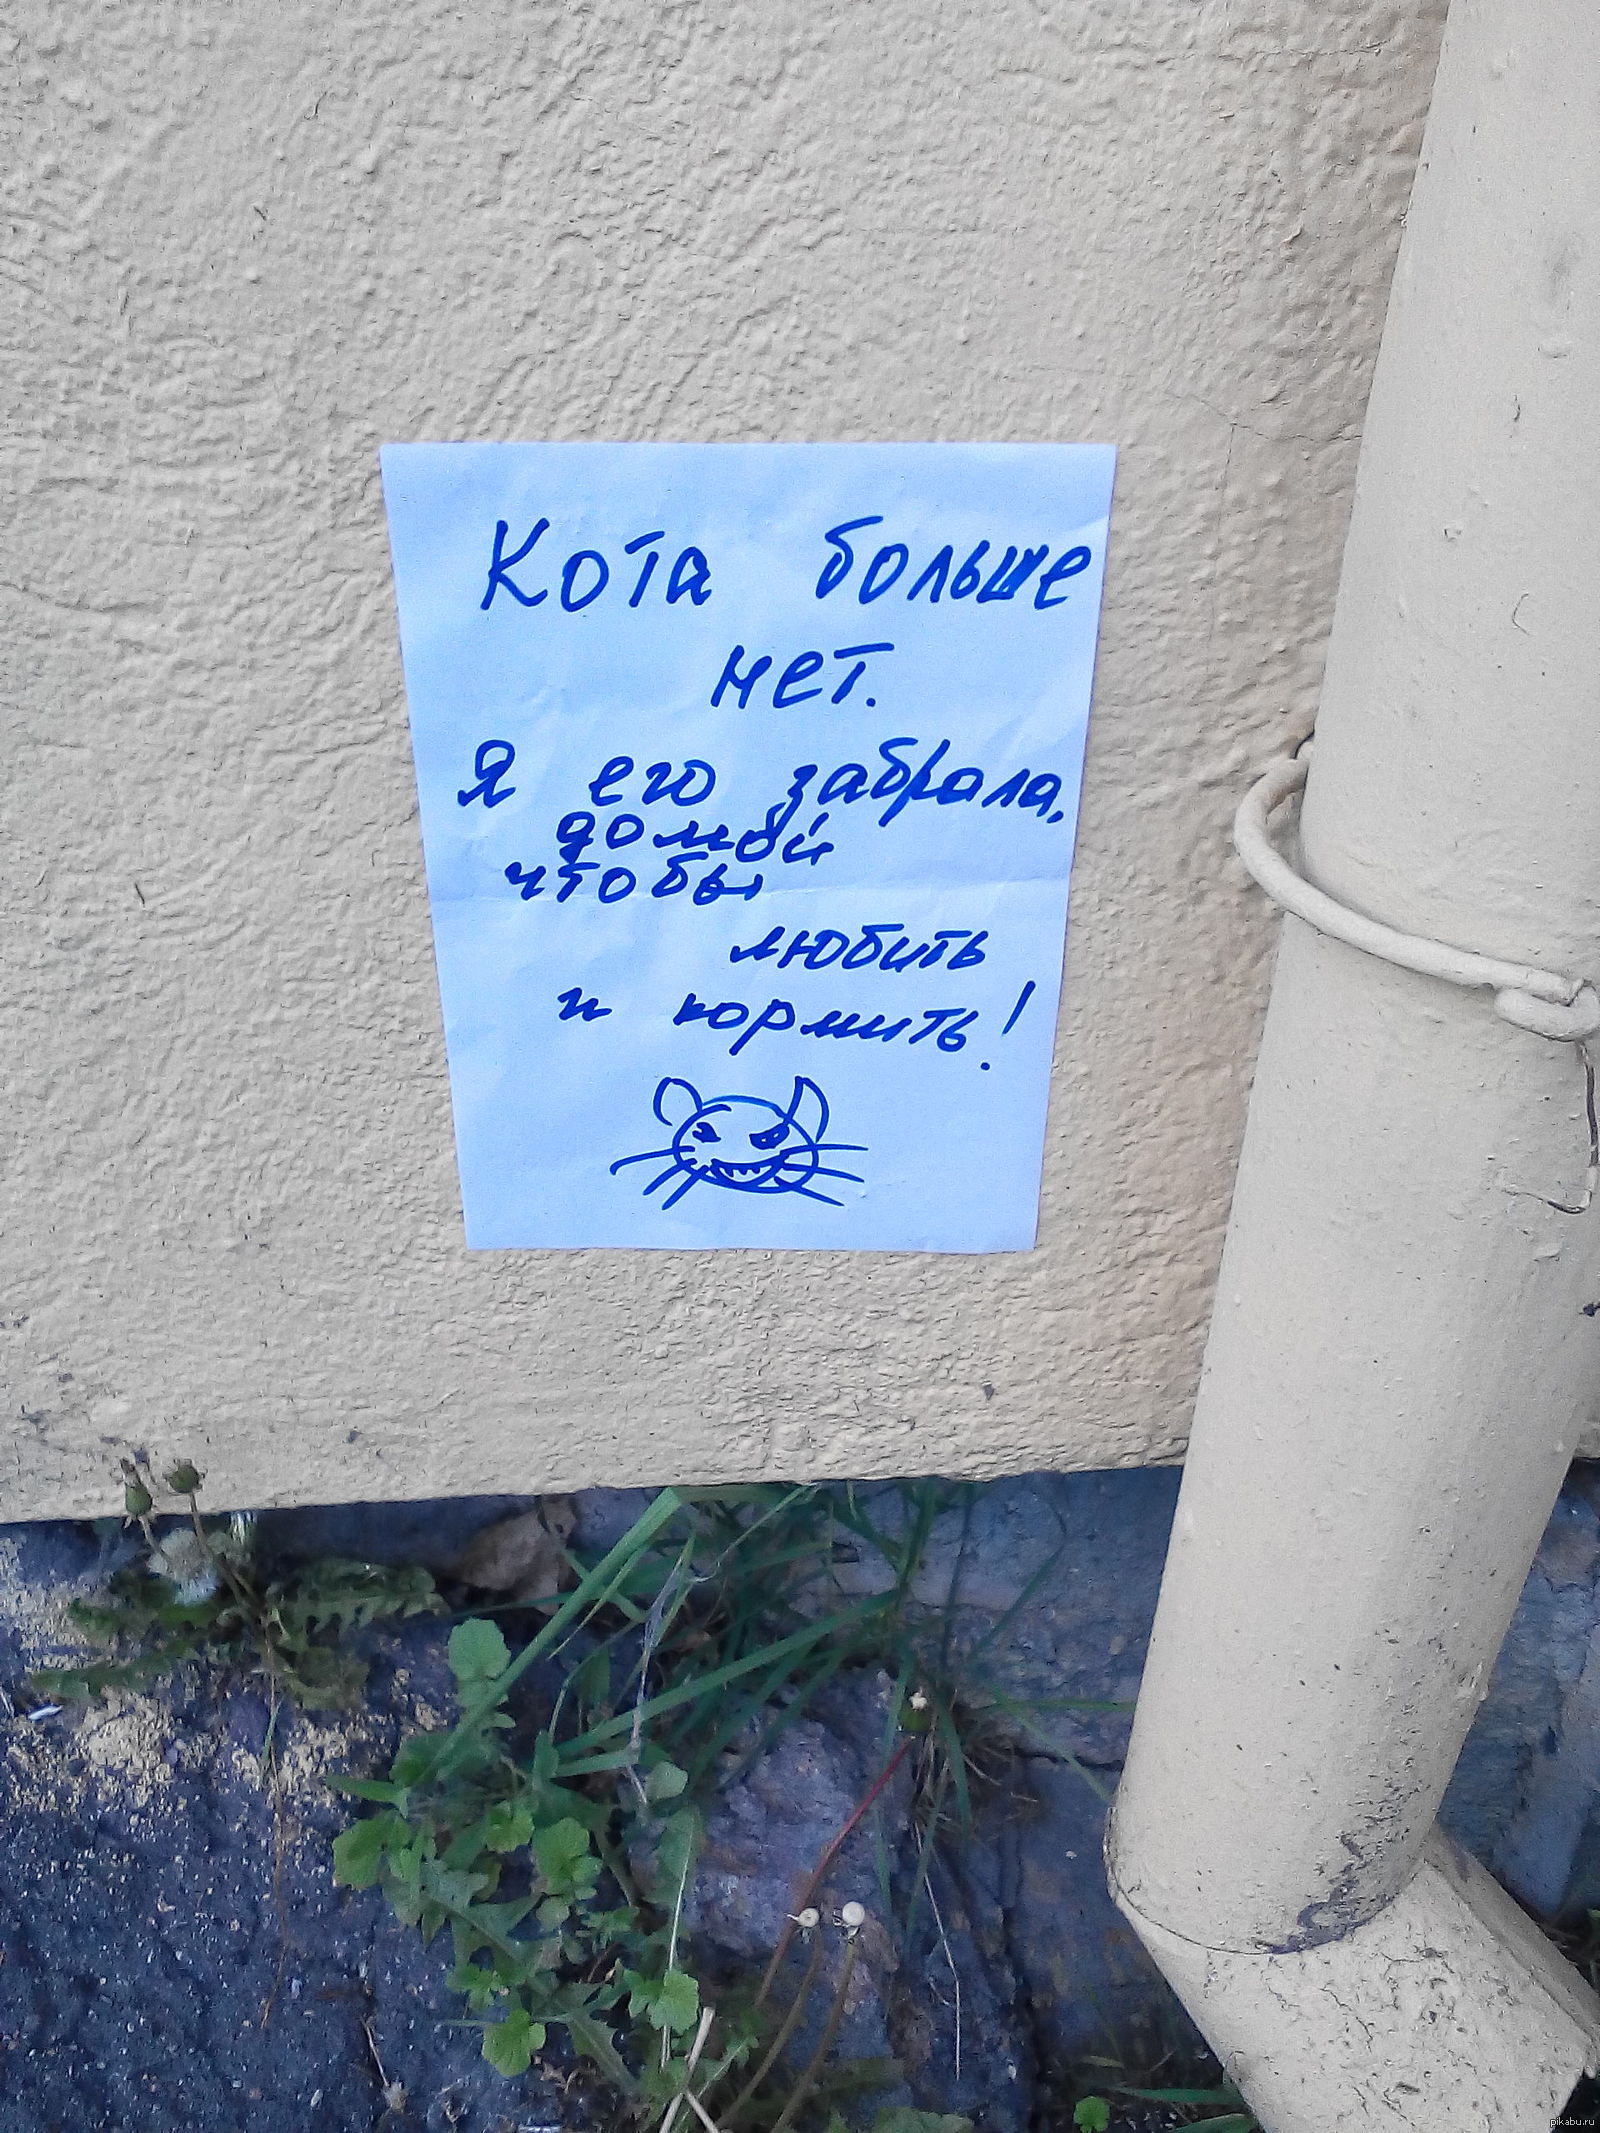 Кота больше
нет.
Я его забрала,
домой
чтобы
любить
и кормить!
pikabu.ru